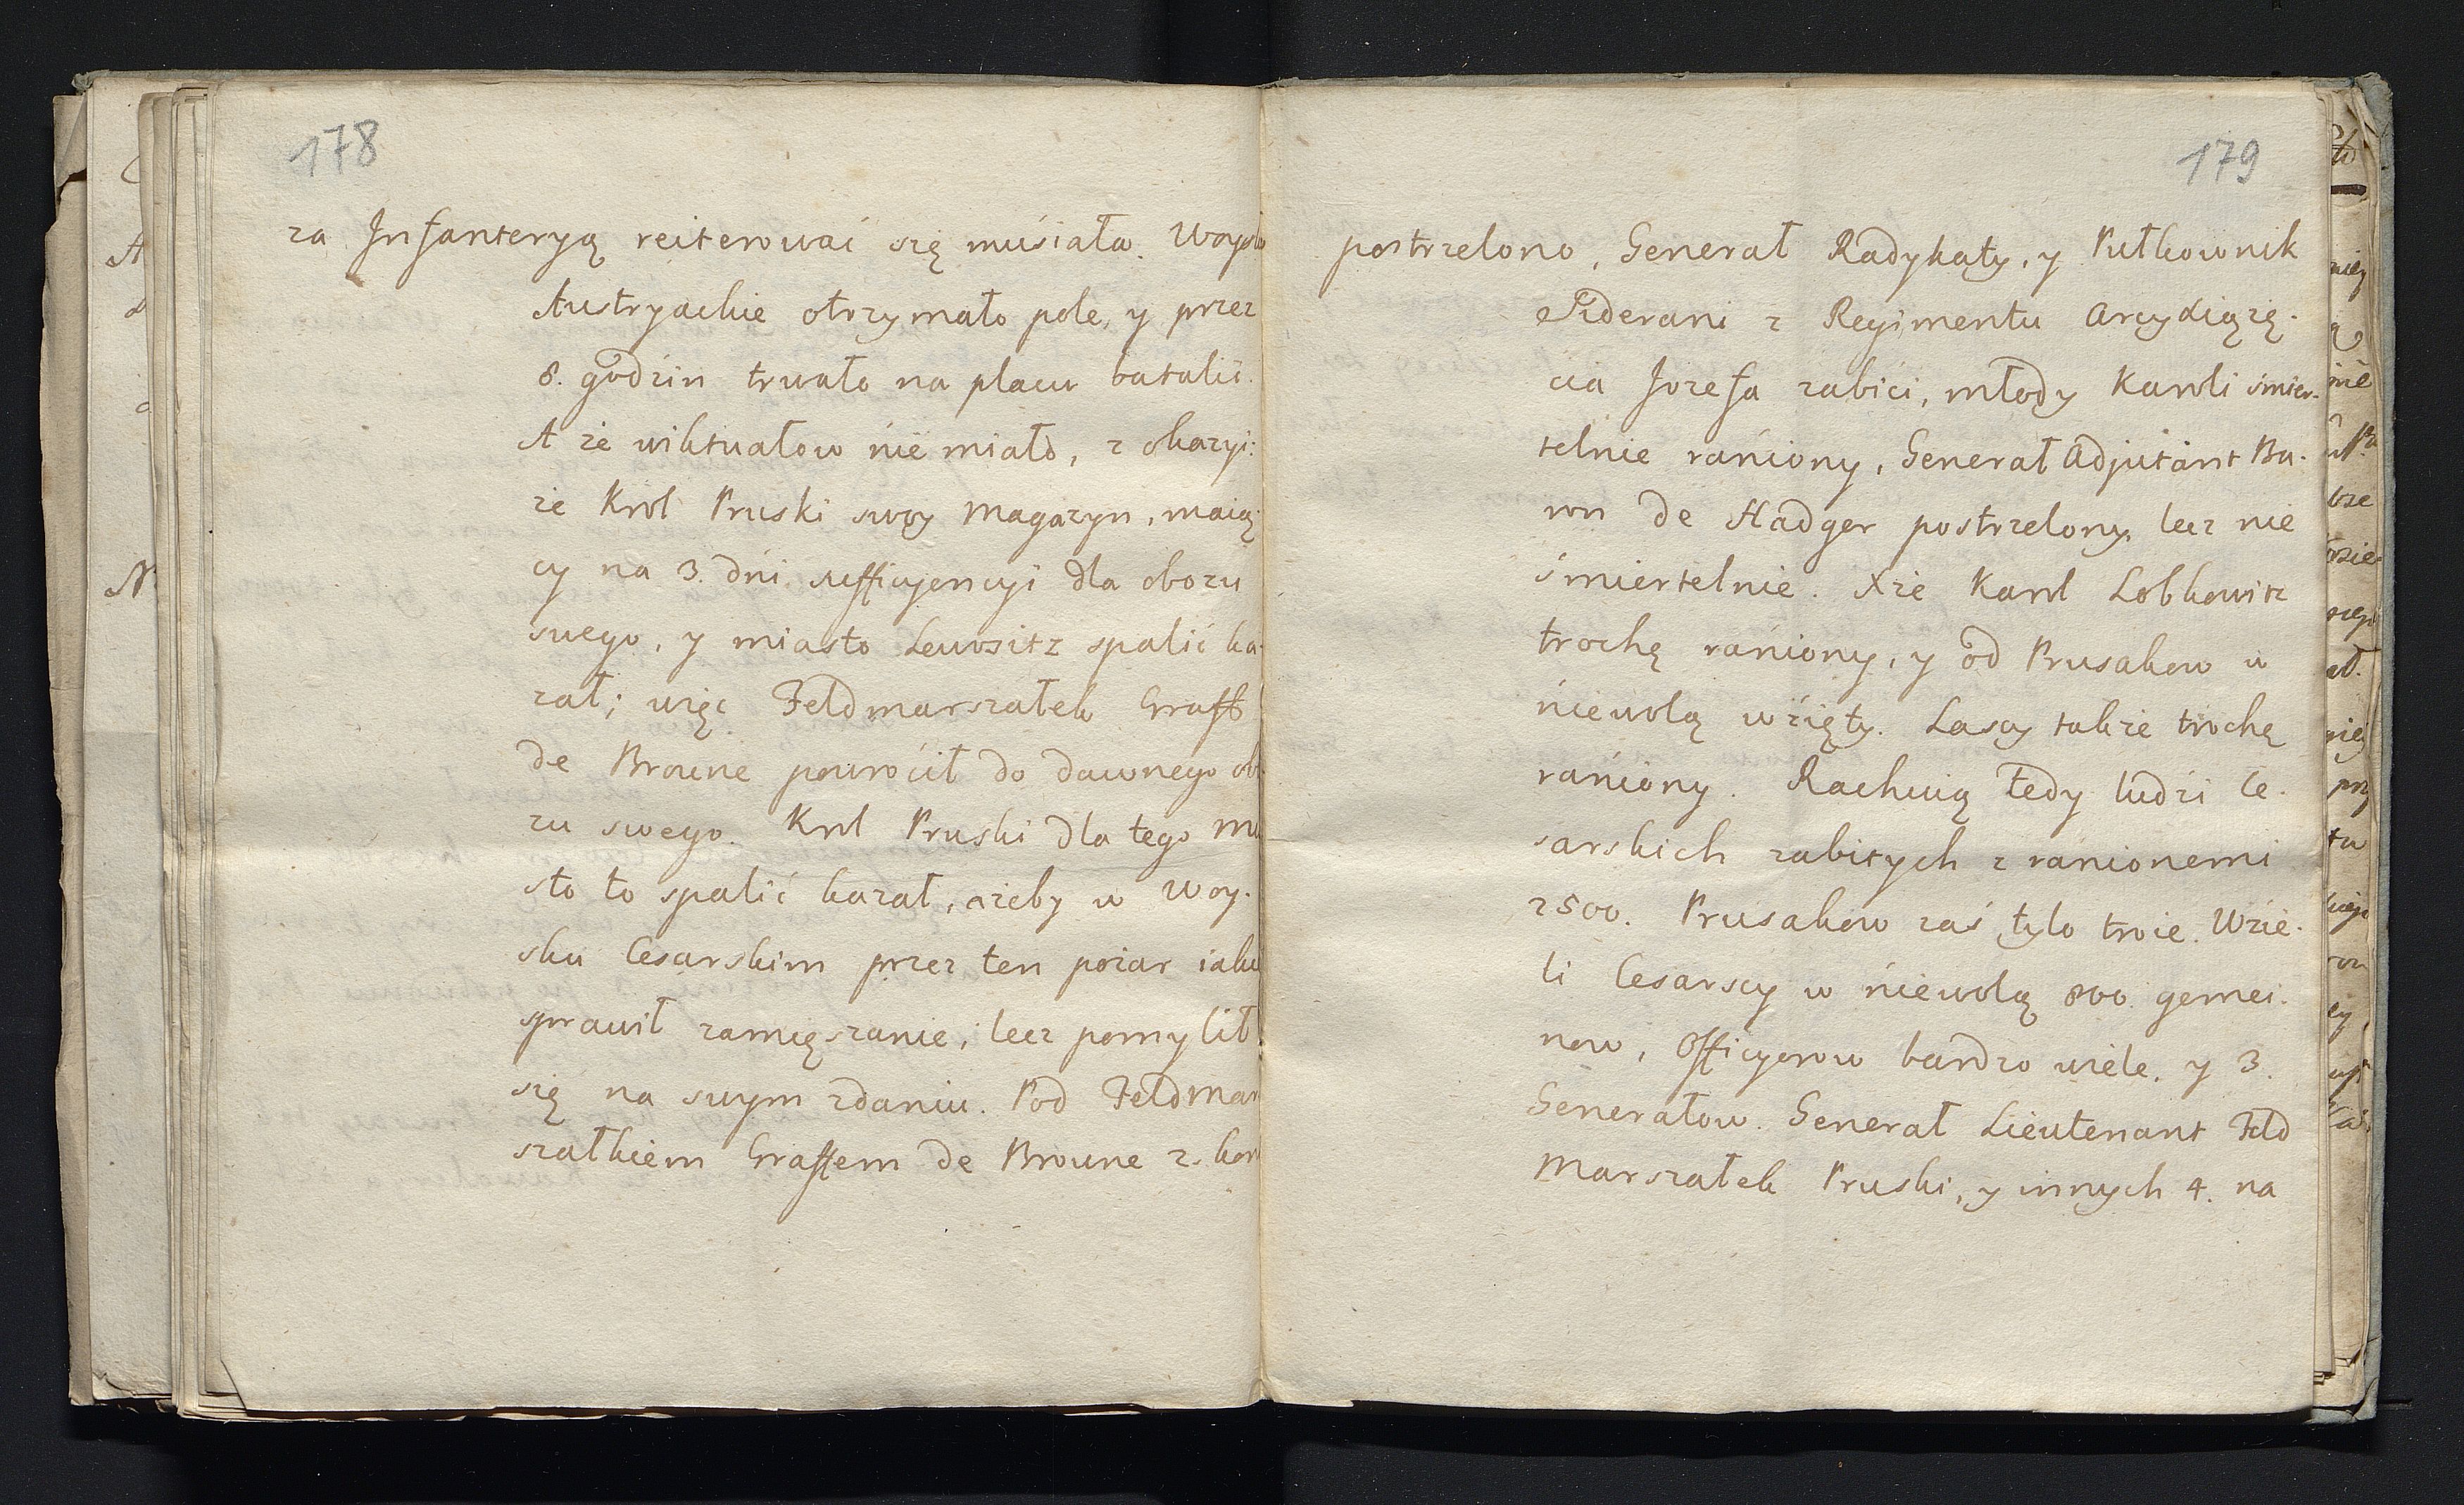 178
za Infanteryą reiterować się musiała. Woysko
Austryackie otrzymało pole, y przez
8. godzin trwało na placu batalii.
A że wiktuałow nie miało, z okazyi:
że Krol Pruski swoy magazyn, maią:
cy na 3. dni sufficyencyi dla obozu
swego, y miasto Lewositz spalić ka:
zał; więc Feldmarszałek Graff
de Broune powrócił do dawnego obo
zu swego. Krol Pruski dla tego mia
sto to spalić kazał, ażeby w Woy.
sku Cesarskim przez ten pożar iakie
sprawił zamięszanie; lecz pomylił
się na swym zdaniu. Pod Feldmar
szałkiem Graffem de Broune 2. kon
179
postrzelono, Generał Radykaty, y Pułkownik
z Regimentu Arcyxiążę.
cia Jozefa zabici, młody Karoli śmier.
telnie raniony, Generał Adjutant Ba.
ron de Hadger postrzelony, lecz nie
śmiertelnie. Xże Karol Lobkowitz
trochę raniony, y od Prusakow w
niewolą wzięty. Lascy także trochę
raniony. Rachuią tedy ludzi Ce.
sarskich zabitych z ranionemi
2500. Prusakow zaś tylo troie. Wzie.
li Cesarscy w niewolą 800. gemei.
now, Officyerow bardzo wiele, y 3.
Generałow. Generał Lieutenant Feld
Marszałek Pruski, y innych 4. na